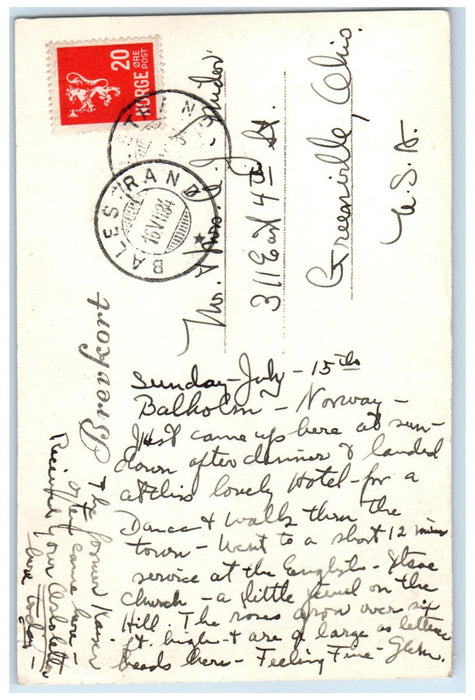 20
ØRE
POST
NORGE
BALESTRAND
16 VII 34
Brevkort
Mr. & Mrs. J.
311 East 4th St.
Greenville, Ohio.
U.S.A.
Sunday - July - 15th
Balholm - Norway -
Just came up here at sun-
down after dinner & landed
at this lovely Hotel - for a
Dance & walk thru the
town - Went to a short 12 min
service at the English
church - a little jewel on the
Hill. The roses grow over six
ft. high & are a large as lettuce
heads here - Feeling Fine - Glenn.
The former Kaiser
often came here -
Received your Oslo letter
here today -